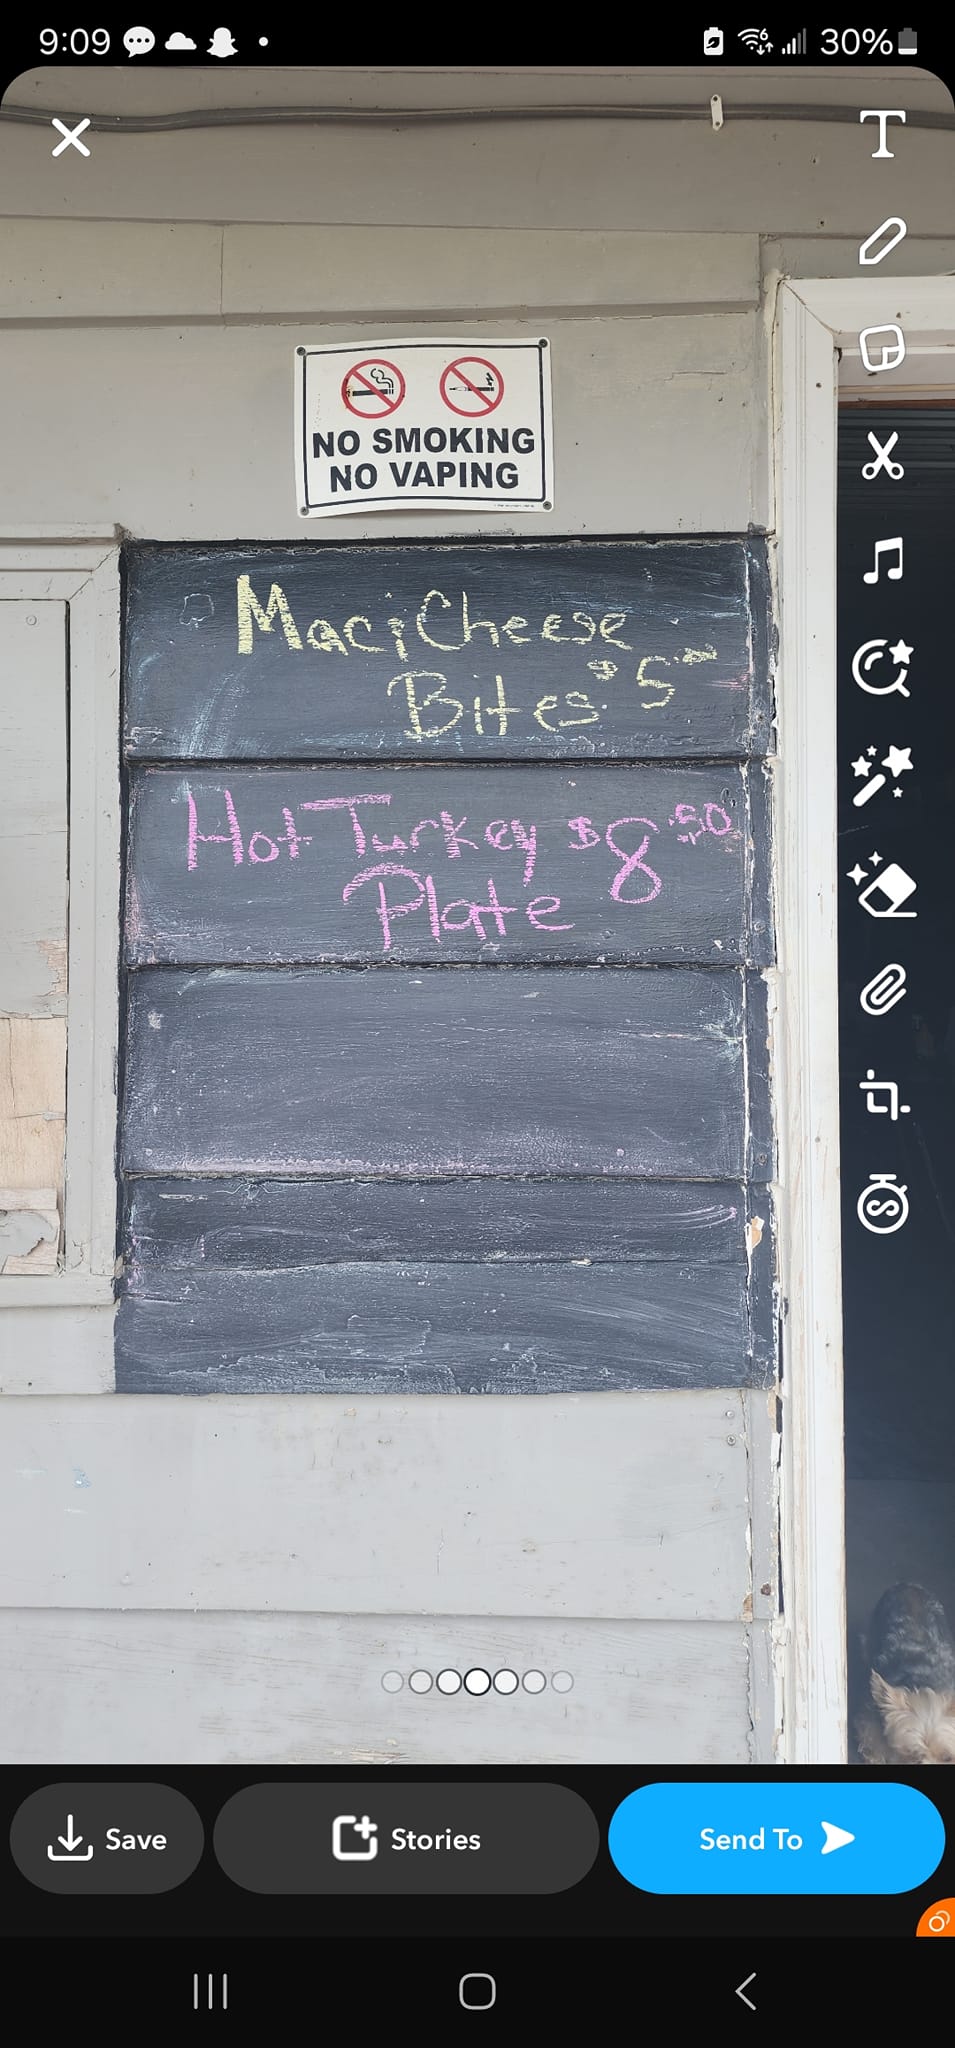 9:09
30%
NO SMOKING
NO VAPING
Mac & Cheese
Bites $5
Hot Turkey $8.50
Plate
Save
Stories
Send To